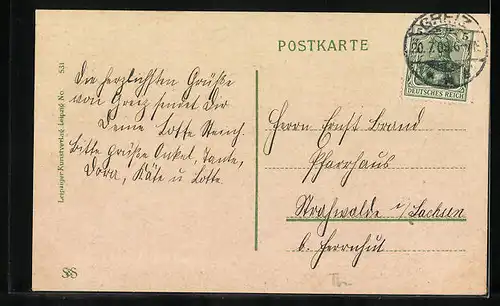 POSTKARTE
GREIZ
20.7.09.6-7N
DEUTSCHES REICH
Die herzlichsten Grüße
von Greiz sendet Dir
Deine Lotte Steich.
bitte grüße Onkel, Tante,
Dora, Käte u Lotte
Herrn Ernst Brand
Pfarrhaus
Strahwalde i/Sachsen
b. Herrnhut
Leipziger Kunstverlag Leipzig No. 531
S&S